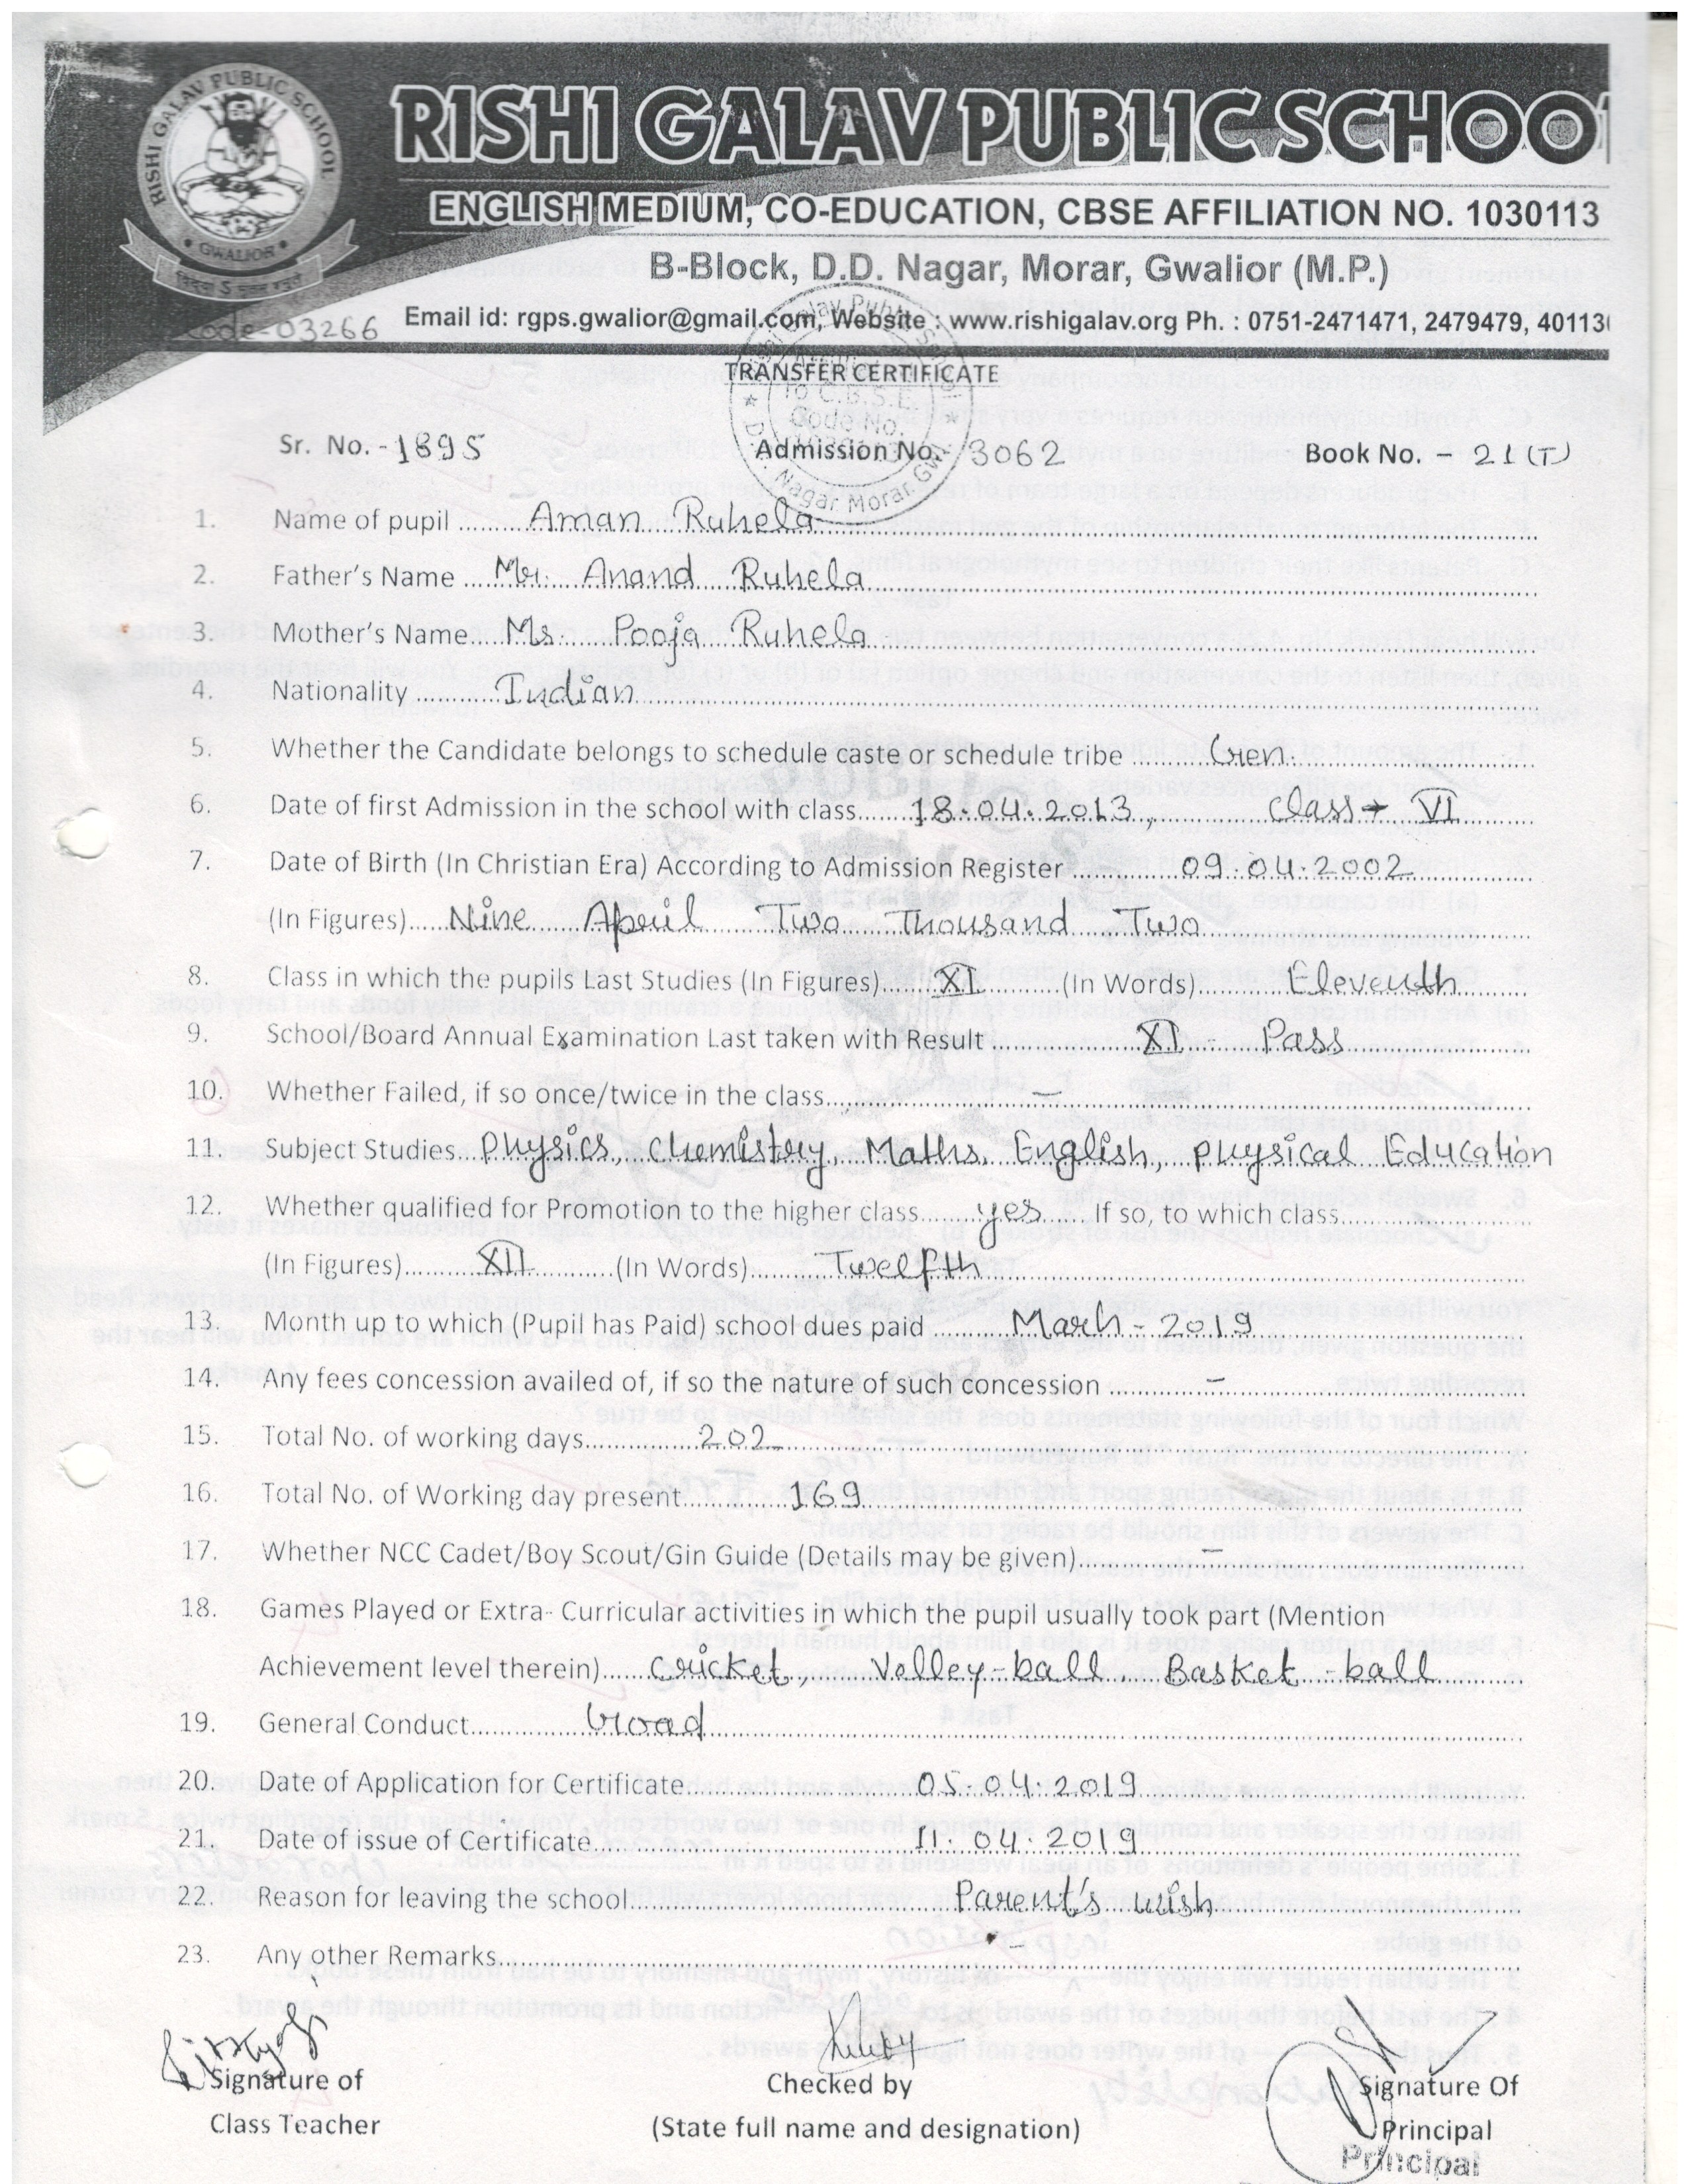 RISHI GALAV PUBLIC SCHOOL
GWALIOR
RISHI GALAV PUBLIC SCHOO
ENGLISH MEDIUM, CO-EDUCATION, CBSE AFFILIATION NO. 1030113
B-Block, D.D. Nagar, Morar, Gwalior (M.P.)
Code-03266
Email id: rgps.gwalior@gmail.com, Website : www.rishigalav.org Ph. : 0751-2471471, 2479479, 40113
TRANSFER CERTIFICATE
To C.B.S.E.
Code No.
Nagar Morar Gwl.
Sr. No. - 1895 Admission No. 3062 Book No. - 21(T)
1. Name of pupil Aman Ruhela
2. Father's Name Mr. Anand Ruhela
3. Mother's Name Ms. Pooja Ruhela
4. Nationality Indian
5. Whether the Candidate belongs to schedule caste or schedule tribe Gen.
6. Date of first Admission in the school with class 18.04.2013, Class → VI
7. Date of Birth (In Christian Era) According to Admission Register 09.04.2002
(In Figures) Nine April Two Thousand Two
8. Class in which the pupils Last Studies (In Figures) XI (In Words) Eleventh
9. School/Board Annual Examination Last taken with Result XI - Pass
10. Whether Failed, if so once/twice in the class —
11. Subject Studies Physics, Chemistry, Maths, English, Physical Education
12. Whether qualified for Promotion to the higher class yes If so, to which class
(In Figures) XII (In Words) Twelfth
13. Month up to which (Pupil has Paid) school dues paid March - 2019
14. Any fees concession availed of, if so the nature of such concession –
15. Total No. of working days 202
16. Total No. of Working day present 169
17. Whether NCC Cadet/Boy Scout/Gin Guide (Details may be given) –
18. Games Played or Extra- Curricular activities in which the pupil usually took part (Mention
Achievement level therein) Cricket, Volley-ball, Basket-ball
19. General Conduct Good
20. Date of Application for Certificate 05.04.2019
21. Date of issue of Certificate 11.04.2019
22. Reason for leaving the school Parent's wish
23. Any other Remarks –
Signature of Checked by Signature Of
Class Teacher (State full name and designation) Principal
Principal